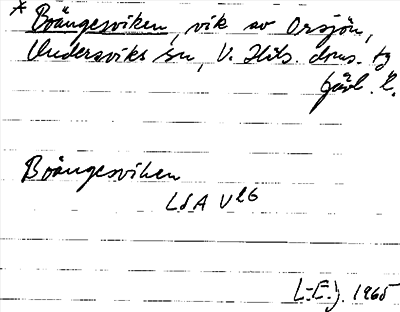 * Brångesviken, vik av Orsjön,
Undersviks sn, V. Häls. doms. tg
Gävl. l.
Brångesviken
LSA V26
L-E. J. 1965